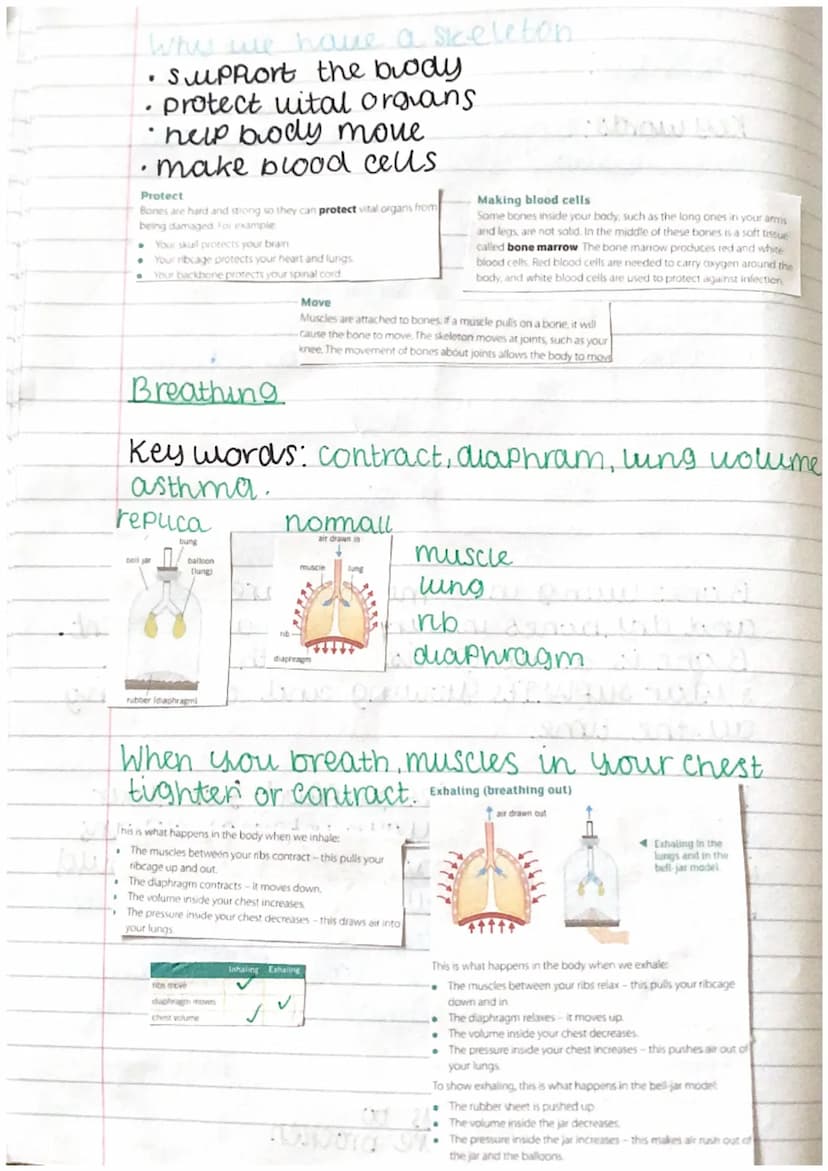 Why we have a skeleton
• support the body
• protect vital organs
• help body move
• make blood cells
Protect
Bones are hard and strong so they can protect vital organs from
being damaged. For example:
• Your skull protects your brain
• Your ribcage protects your heart and lungs.
• Your backbone protects your spinal cord.
Making blood cells
Some bones inside your body, such as the long ones in your arms
and legs, are not solid. In the middle of these bones is a soft tissue
called bone marrow. The bone marrow produces red and white
blood cells. Red blood cells are needed to carry oxygen around the
body, and white blood cells are used to protect against infection.
Move
Muscles are attached to bones. If a muscle pulls on a bone, it will
cause the bone to move. The skeleton moves at joints, such as your
knee. The movement of bones about joints allows the body to move
Breathing
Key words: contract, diaphram, lung volume
asthma.
replica
normall
bung
bell jar
balloon
(lung)
rubber (diaphragm)
air drawn in
muscle
lung
rib
diaphragm
muscle
lung
rib
diaphragm
When you breath, muscles in your chest
tighten or contract.
This is what happens in the body when we inhale:
• The muscles between your ribs contract – this pulls your
ribcage up and out.
• The diaphragm contracts – it moves down.
• The volume inside your chest increases.
• The pressure inside your chest decreases – this draws air into
your lungs.
Inhaling Exhaling
ribs move ✓
diaphragm moves ✓
chest volume ✓
Exhaling (breathing out)
air drawn out
◄ Exhaling in the
lungs and in the
bell-jar model.
This is what happens in the body when we exhale:
• The muscles between your ribs relax – this pulls your ribcage
down and in.
• The diaphragm relaxes – it moves up.
• The volume inside your chest decreases.
• The pressure inside your chest increases – this pushes air out of
your lungs.
To show exhaling, this is what happens in the bell-jar model:
• The rubber sheet is pushed up.
• The volume inside the jar decreases.
• The pressure inside the jar increases – this makes air rush out of
the jar and the balloons.